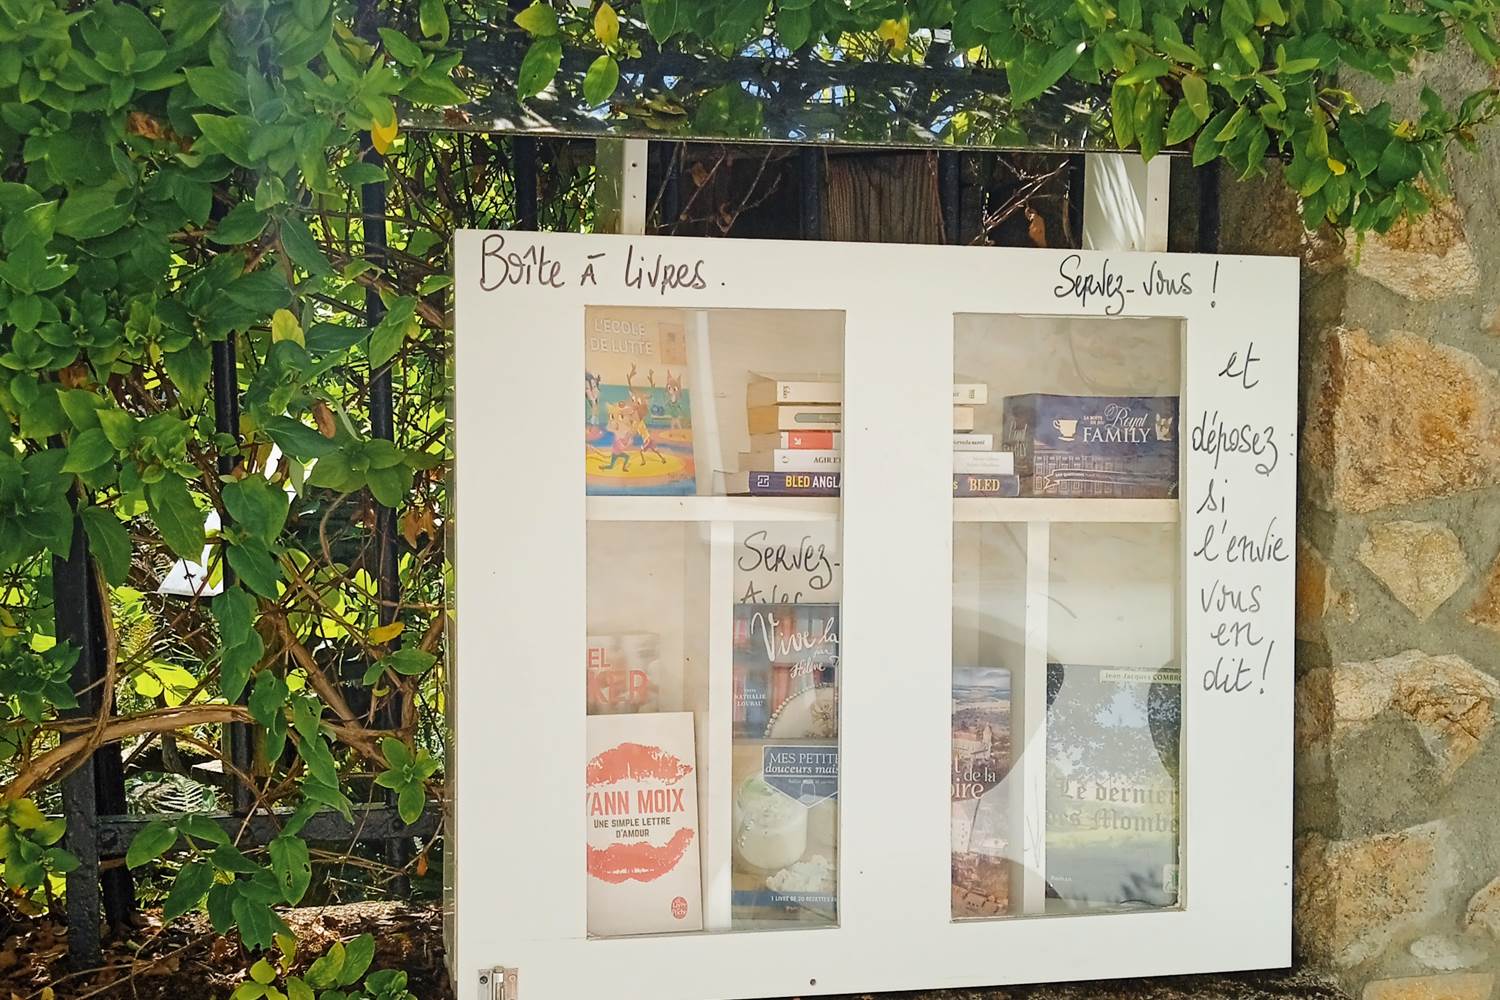 Boîte à livres.
Servez-vous !
et
déposez :
si
l'envie
vous
en
dit !
L'ECOLE
DE LUTTE
AGIR ET
BLED ANGLA
BLED
Royal
FAMILY
Servez-
Avec
EL
KER
Vive la
par
Hélène
NATHALIE
LOUBAU
MES PETITE
douceurs mais
1 LIVRE DE 20 RECETTES
YANN MOIX
UNE SIMPLE LETTRE
D'AMOUR
Le Livre
de
Poche
t de la
oire
Jean-Jacques COMBRO
Le dernier
des Mombe
Roman